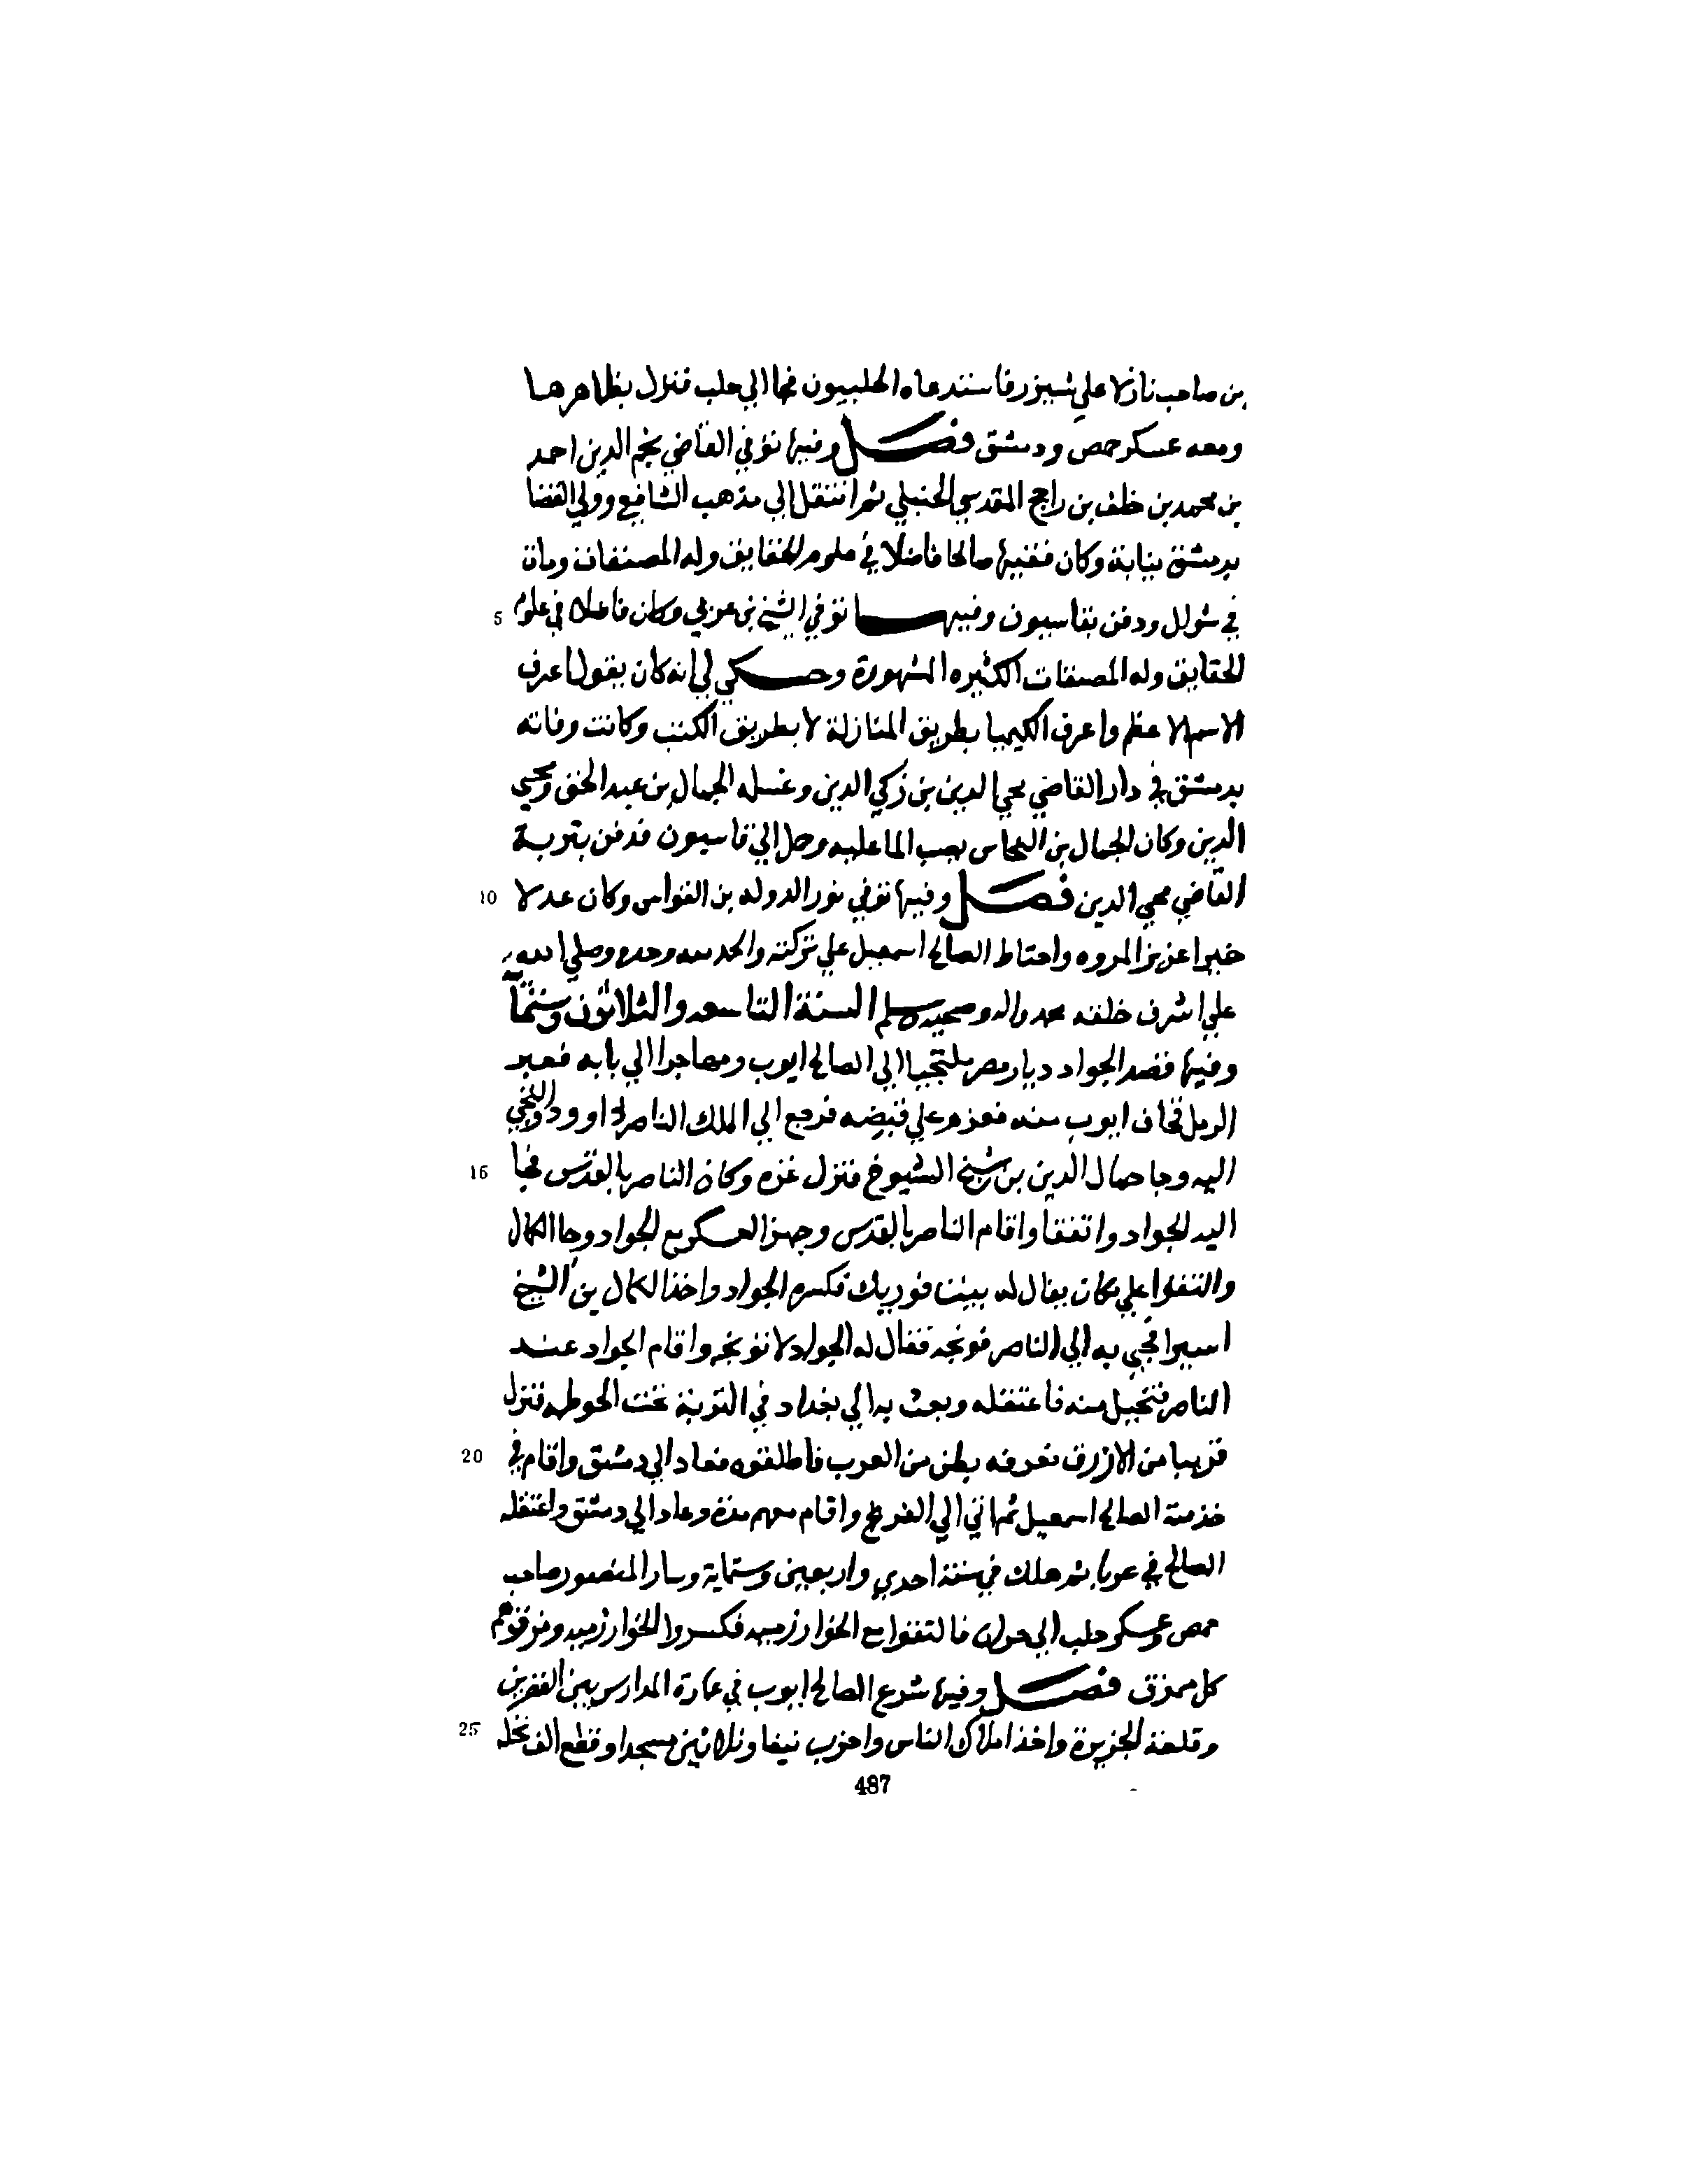 بن صاحب نازلا علي شيزر فاستدعاه الحلبيون فجا الي حلب فنزل بظاهرها
ومعه عسكر حمص ودمشق فصل وفيها توفي القاضي نجم الدين احمد
بن محمد بن خلف بن راجح المقدسي الحنبلي ثم انتقل الي مذهب الشافعي وولي القضا
بدمشق نيابة وكان فقيها صالحا فاضلا في علوم الحقايق وله المصنفات ومات
في شوال ودفن بقاسيون وفيها توفي الشيخ بن عربي وكان فاضلا في علوم 5
الحقايق وله المصنفات الكثيره المشهورة وحكي لي انه كان يقول اعرف
الاسم الاعظم واعرف الكيميا بطريق المنازلة لا بطريق الكسب وكانت وفاته
بدمشق في دار القاضي محيي الدين بن زكي الدين وغسله الجمال بن عبد الحق ومحيي
الدين وكان الجمال بن النحاس يصب الما عليه وحمل الي قاسيون فدفن بتربة
القاضي محيي الدين فصل وفيها توفي نور الدوله بن القواس وكان عدلا 10
خيرا عزيز المروه واحتاط الصالح اسمعيل علي تركته والحمد لله وحده وصلي الله
علي اشرف خلقه محمد واله وصحبه وسلم السنة التاسعه والثلاثون وستمأ
وفيها قصد الجواد ديار مصر ملتجيا الي الصالح ايوب ومهاجرا الي بابه فعبر
الرمل فخاف ايوب منه فعزم علي قبضه فرجع الي الملك الناصر داوود والتجي
اليه وجا كمال الدين بن شيخ الشيوخ فنزل غزه وكان الناصر بالقدس فجا 15
اليه الجواد واتفقا واقام الناصر بالقدس وجهز العسكر مع الجواد وجا الكمال
والتقوا علي مكان يقال له بيت فوريك فكسره الجواد واخذ الكمال بن الشيخ
اسيرا فجي به الي الناصر فوبخه فقال له الجواد لا توبخه واقام الجواد عند
الناصر فتخيل منه فاعتقله وبعث به الي بغداد في التوبة تحت الحوطه فنزل
قريبا من الازرق فعرفه بطن من العرب فاطلقوه فعاد الي دمشق واقام في 20
خدمة الصالح اسمعيل ثم اتي الي الفرنج واقام معهم مدة وعاد الي دمشق واعتقله
الصالح في عزتا ثم هلك في سنة احدي واربعين وستماية وسار المنصور صاحب
حمص وعسكر حلب الي حران فالتقوا مع الخوارزميه فكسروا الخوارزميه ومزقوهم
كل ممزق فصل وفيها شرع الصالح ايوب في عمارة المدارس بين القصرين
وقلعة الجزيرة واخذ املاك الناس واخرب نيفا وثلاثين مسجدا وقطع الف نخله 25
487